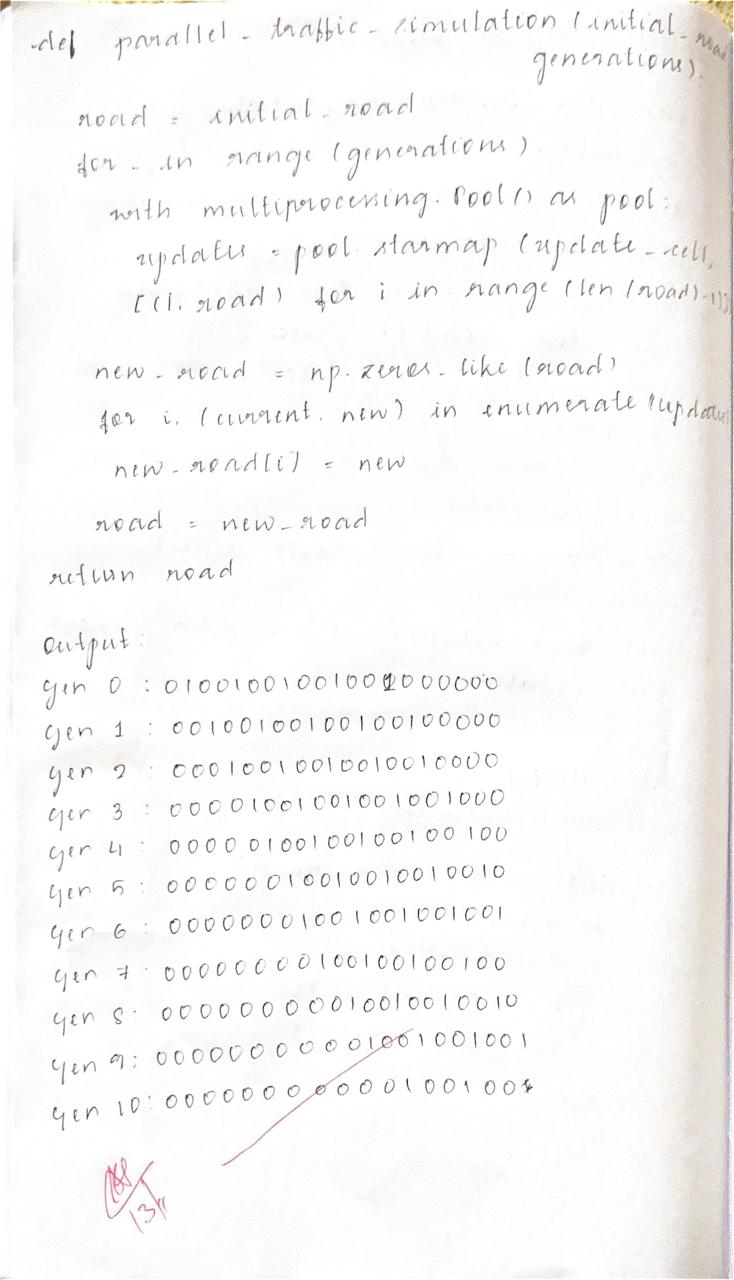 def parallel_traffic_simulation (initial_road
generations).
road = initial_road
for _ in range (generations)
with multiprocessing. Pool() as pool:
updates = pool. starmap (update_cell,
[(i, road) for i in range (len (road)-1)])
new_road = np. zeros_like (road)
for i, (current, new) in enumerate (updates
new_road[i] = new
road = new_road
return road
Output:
Gen 0 : 01001001001001000000
Gen 1 : 00100100100100100000
Gen 2 : 00010010010010010000
Gen 3 : 00001001001001001000
Gen 4 : 00000100100100100100
Gen 5 : 00000010010010010010
Gen 6 : 00000001001001001001
Gen 7 : 00000000100100100100
Gen 8 : 00000000010010010010
Gen 9 : 00000000001001001001
Gen 10 : 0000000000001001001